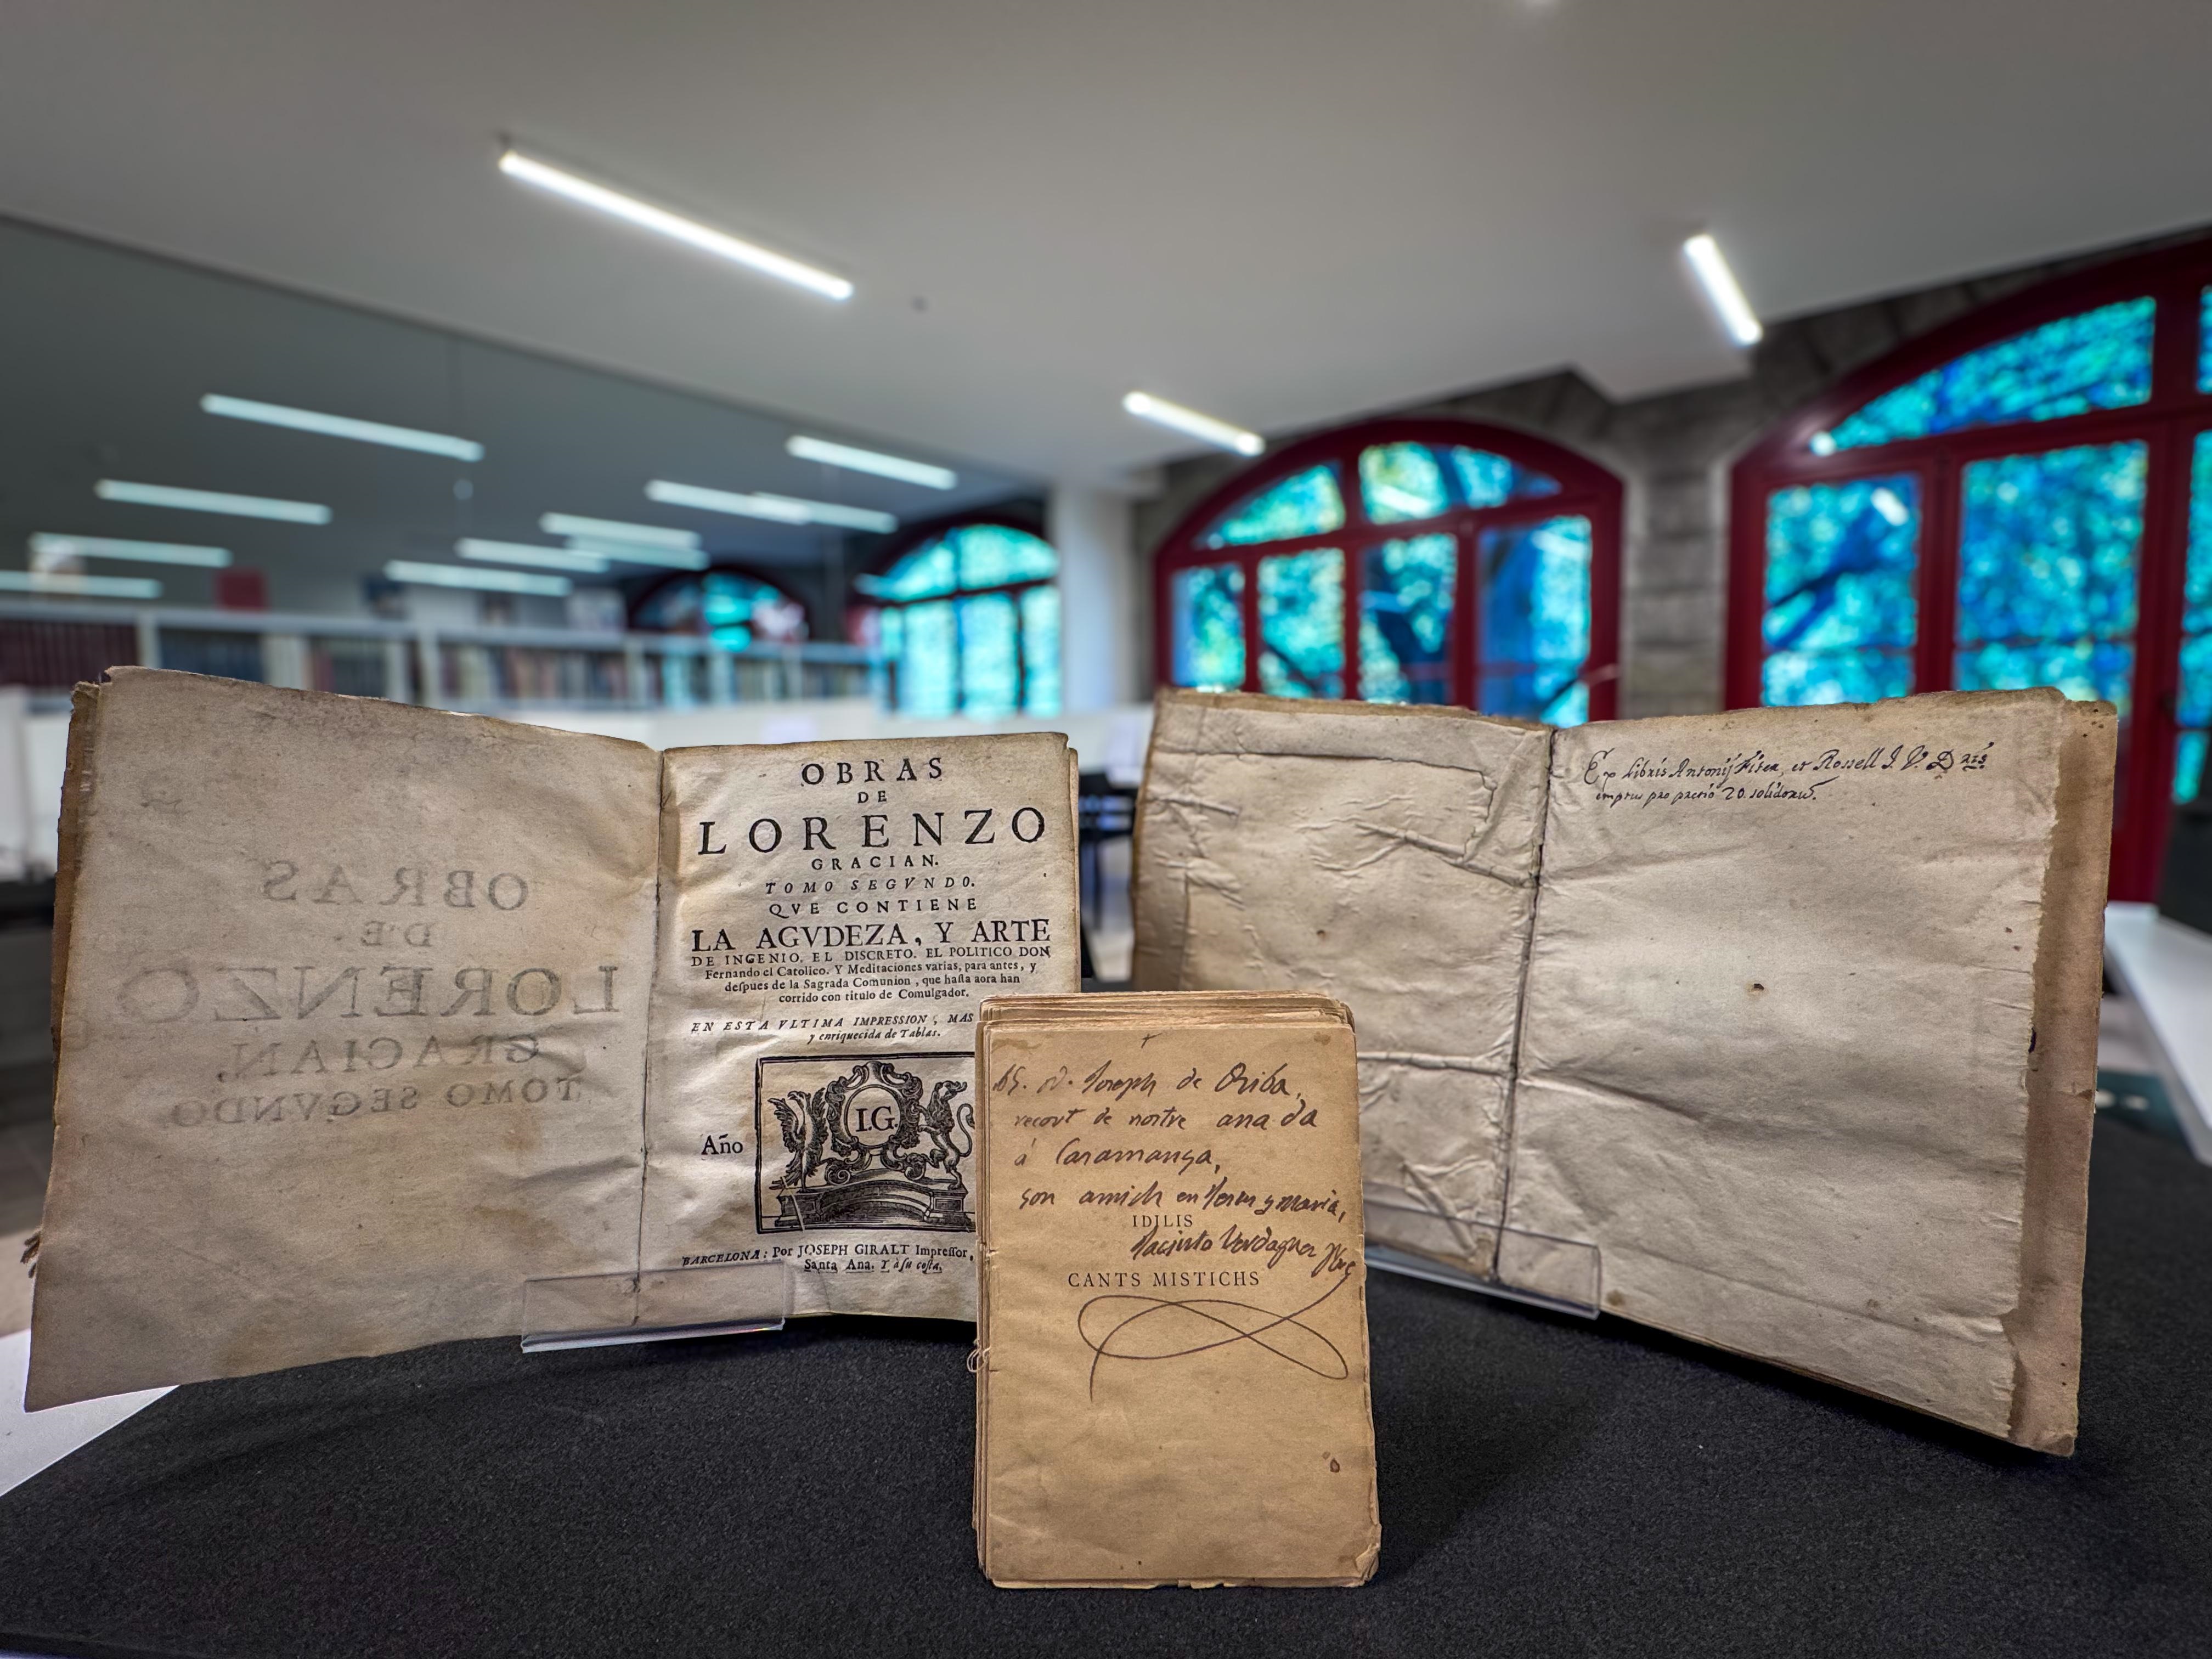 OBRAS
DE
LORENZO
GRACIAN,
TOMO SEGVNDO
OBRAS
DE
LORENZO
GRACIAN.
TOMO SEGVNDO.
QVE CONTIENE
LA AGVDEZA, Y ARTE
DE INGENIO. EL DISCRETO. EL POLITICO DON
Fernando el Catolico. Y Meditaciones varias, para antes, y
despues de la Sagrada Comunion, que hasta aora han
corrido con titulo de Comulgador.
EN ESTA VLTIMA IMPRESSION, MAS
y enriquecida de Tablas.
I.G.
Año
BARCELONA: Por JOSEPH GIRALT Impressor,
Santa Ana. Y à su costa,
Joseph de Oriba,
recort de nostre anada
á Caramanya,
son amich en Jesus y Maria,
IDILIS
Jacinto Verdaguer Pbre
CANTS MISTICHS
Ex libris Antonij Fiter, et Rossell J. V. D
emptus pro pretio 20. solidorum.